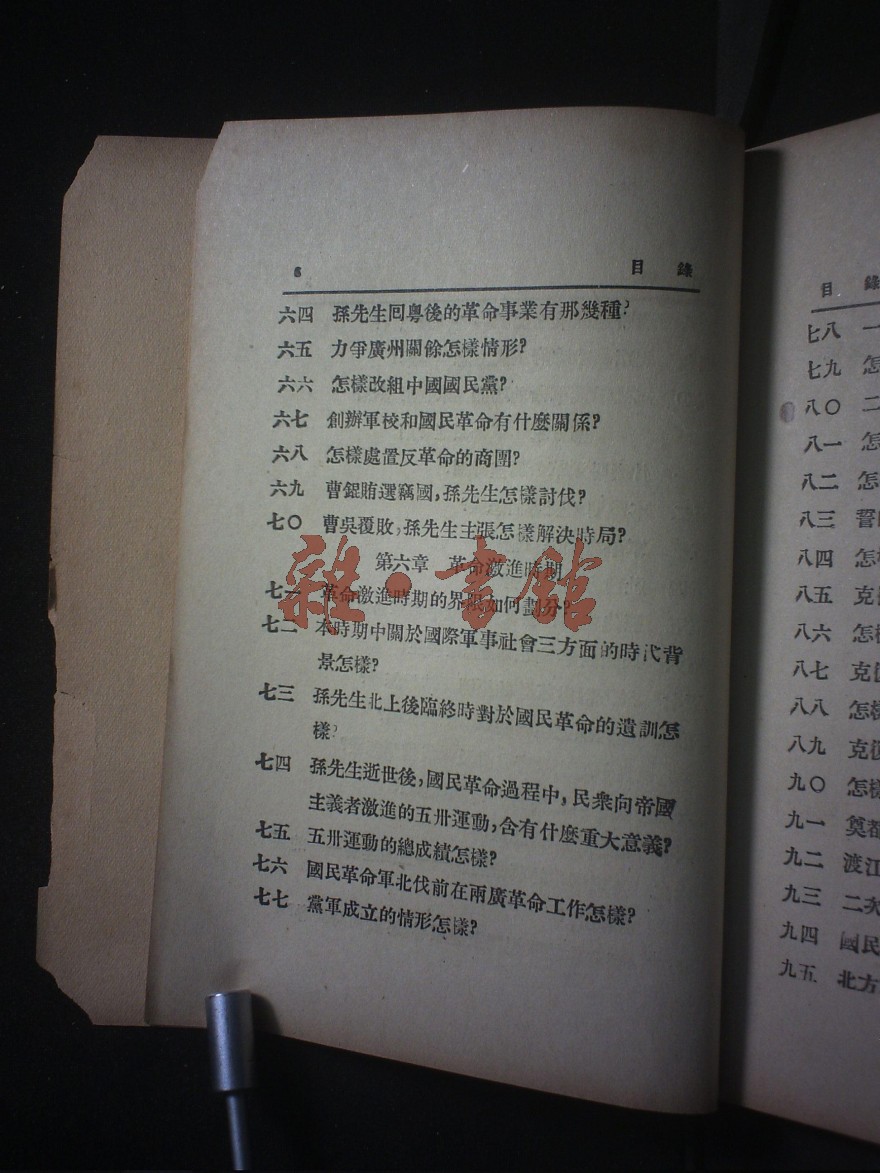 6 目錄
六四 孫先生囘粵後的革命事業有那幾種?
六五 力爭廣州關餘怎樣情形?
六六 怎樣改組中國國民黨?
六七 創辦軍校和國民革命有什麼關係?
六八 怎樣處置反革命的商團?
六九 曹錕賄選竊國,孫先生怎樣討伐?
七〇 曹吳覆敗,孫先生主張怎樣解決時局?
第六章 革命激進時期
七一 革命激進時期的界限如何劃分?
七二 本時期中關於國際軍事社會三方面的時代背
景怎樣?
七三 孫先生北上後臨終時對於國民革命的遺訓怎
樣?
七四 孫先生逝世後,國民革命過程中,民衆向帝國
主義者激進的五卅運動,含有什麼重大意義?
七五 五卅運動的總成績怎樣?
七六 國民革命軍北伐前在兩廣革命工作怎樣?
七七 黨軍成立的情形怎樣?
雜·書館
目錄
七八 一
七九 怎
八〇 二
八一 怎
八二 怎
八三 誓
八四 怎樣
八五 克
八六 怎樣
八七 克復
八八 怎樣
八九 克復
九〇 怎樣
九一 奠都
九二 渡江
九三 二次
九四 國民
九五 北方